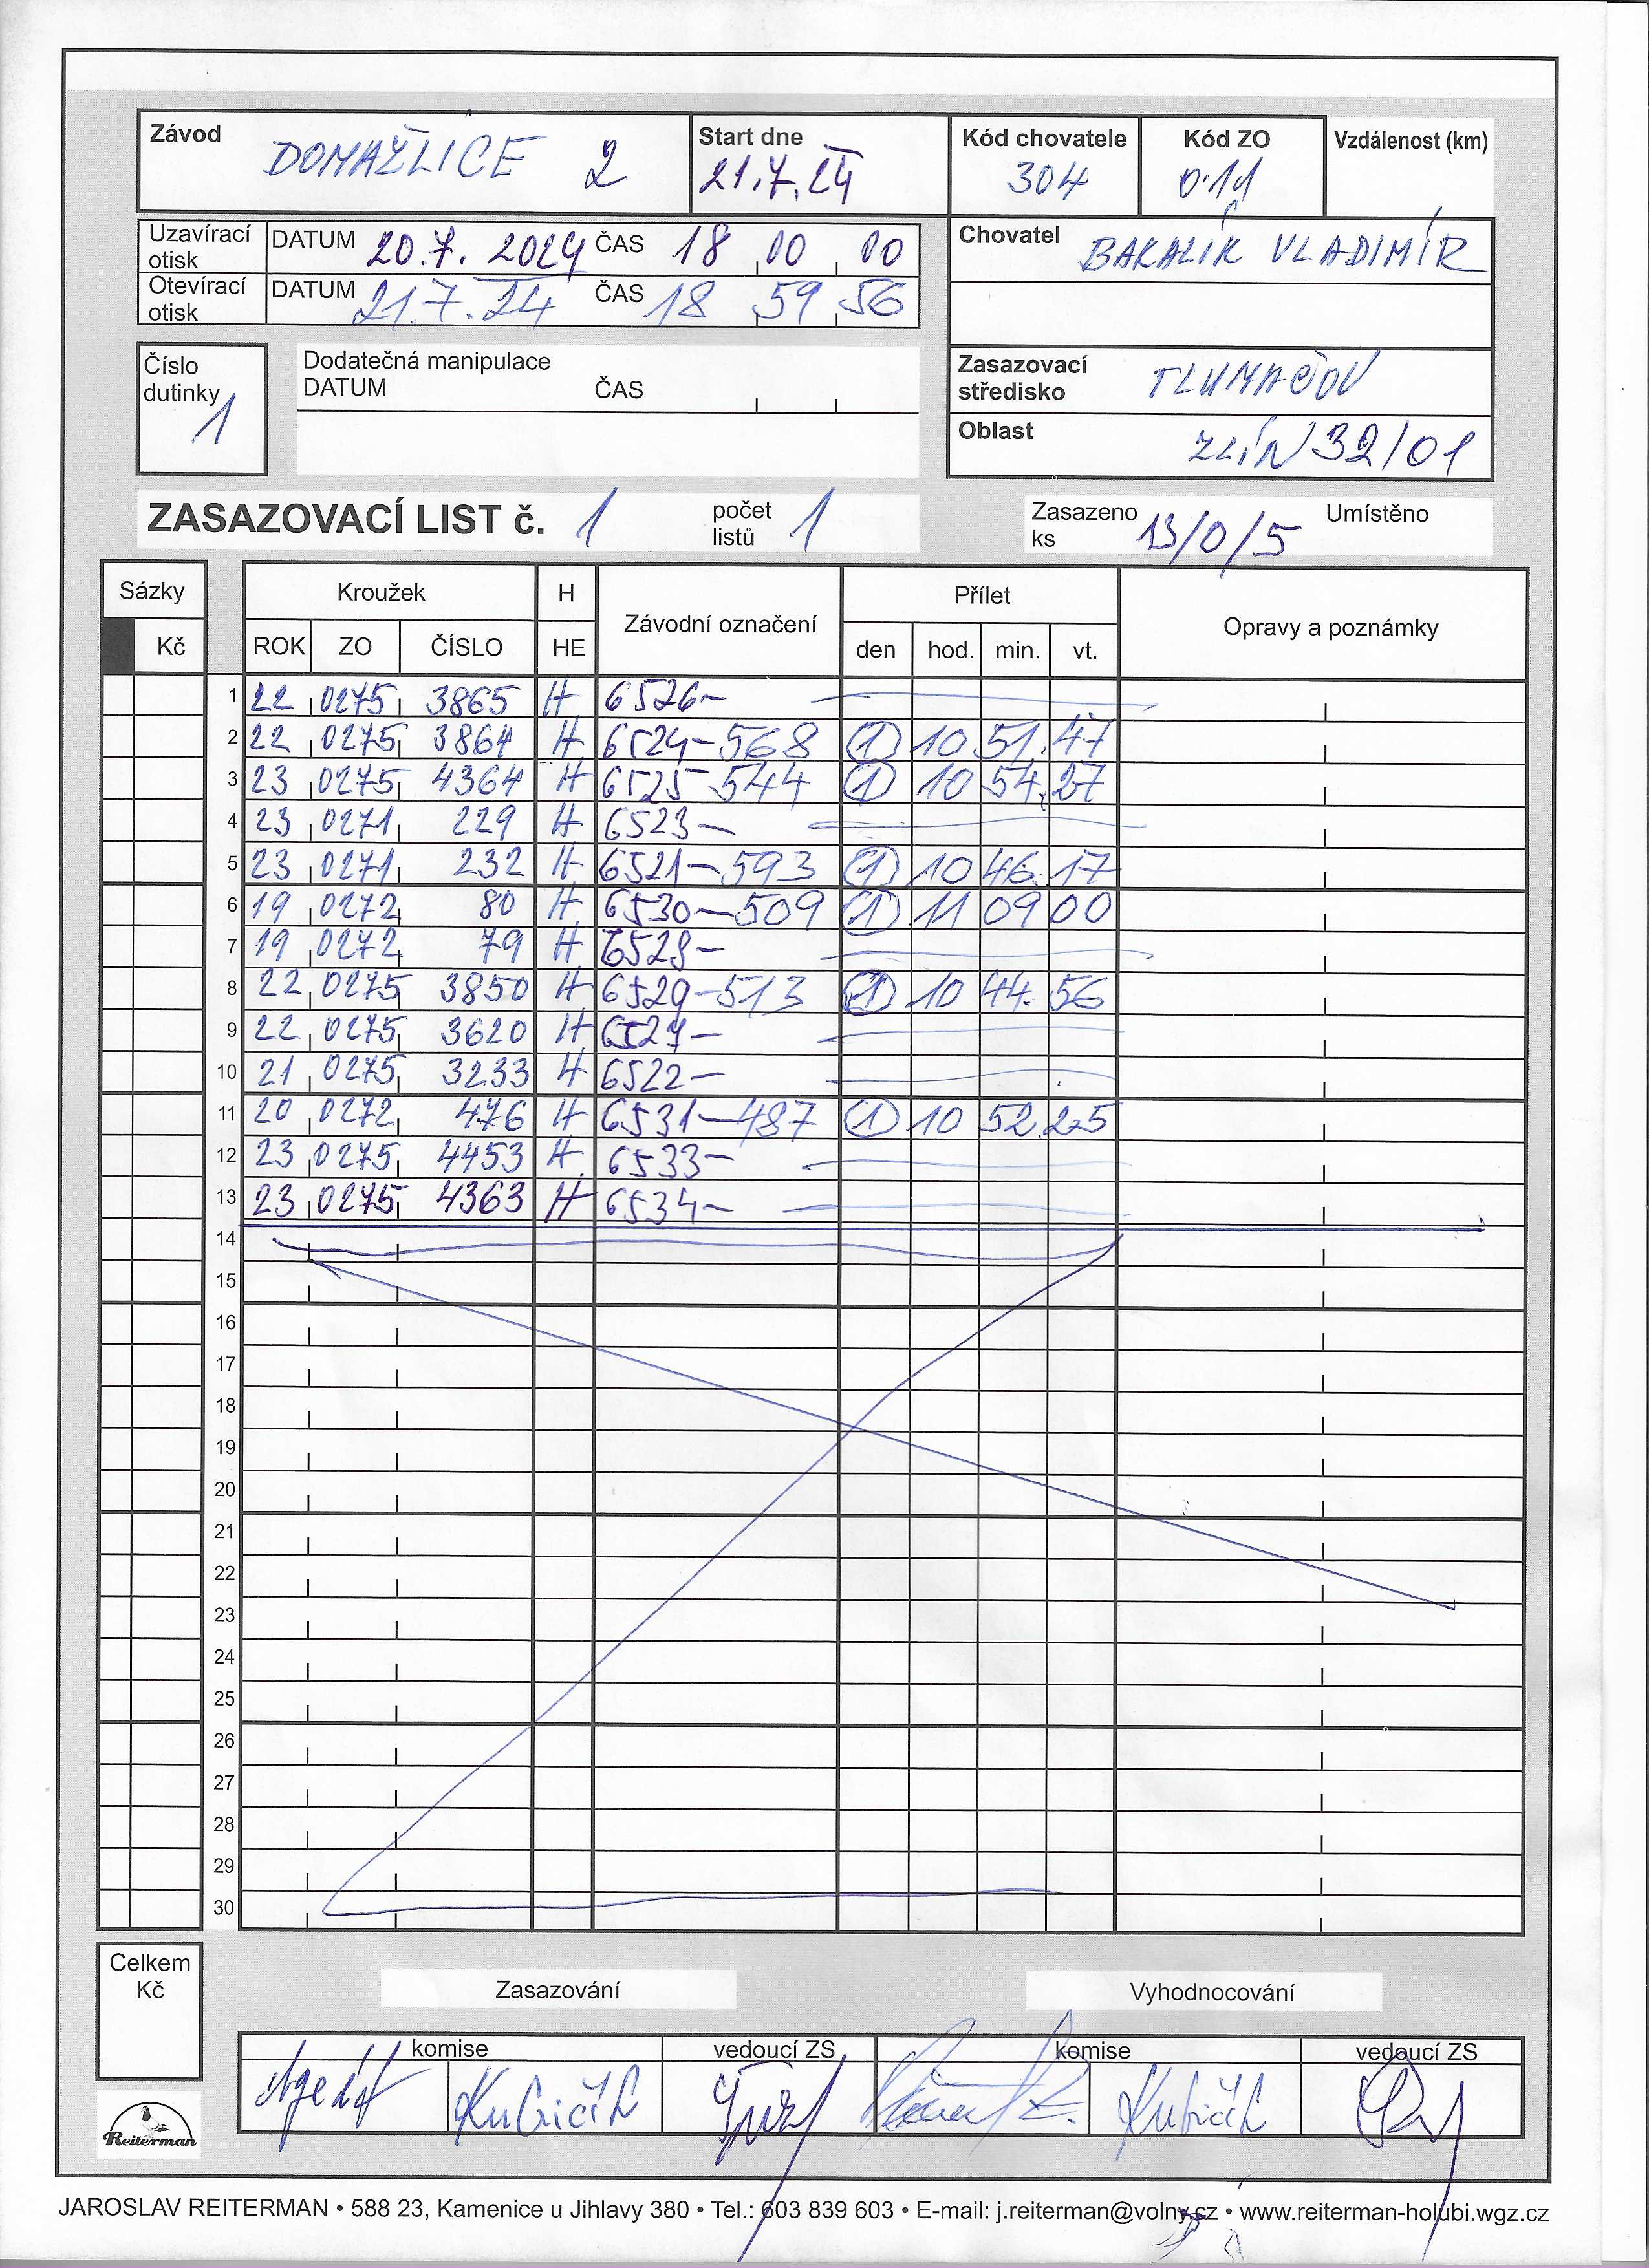 Závod DOMAŽLICE 2 Start dne 21.7.24 Kód chovatele 304 Kód ZO 011 Vzdálenost (km)
Uzavírací otisk DATUM 20.7. 2024 ČAS 18 00 00
Otevírací otisk DATUM 21.7.24 ČAS 18 59 56
Chovatel BAKALÍK VLADIMÍR
Číslo dutinky 1
Dodatečná manipulace
DATUM ČAS
Zasazovací středisko TLUMAČOV
Oblast ZLÍN 32/01
ZASAZOVACÍ LIST č. 1 počet listů 1 Zasazeno ks 13/0/5 Umístěno
Sázky Kroužek H Závodní označení Přílet Opravy a poznámky
Kč ROK ZO ČÍSLO HE den hod. min. vt.
1 22 0275 3865 H 6526-
2 22 0275 3864 H 6524-568 1 10 51 47
3 23 0275 4364 H 6525-544 1 10 54 27
4 23 0271 229 H 6523-
5 23 0271 232 H 6521-593 1 10 46 17
6 19 0272 80 H 6530-509 1 11 09 00
7 19 0272 79 H 6528-
8 22 0275 3850 H 6529-513 1 10 44 56
9 22 0275 3620 H 6527-
10 21 0275 3233 H 6522-
11 20 0272 476 H 6531-487 1 10 52 25
12 23 0275 4453 H 6533-
13 23 0275 4363 H 6534-
14
15
16
17
18
19
20
21
22
23
24
25
26
27
28
29
30
Celkem Kč
Zasazování Vyhodnocování
komise vedoucí ZS komise vedoucí ZS
Kubičík Kubičík
Reiterman
JAROSLAV REITERMAN • 588 23, Kamenice u Jihlavy 380 • Tel.: 603 839 603 • E-mail: j.reiterman@volny.cz • www.reiterman-holubi.wgz.cz